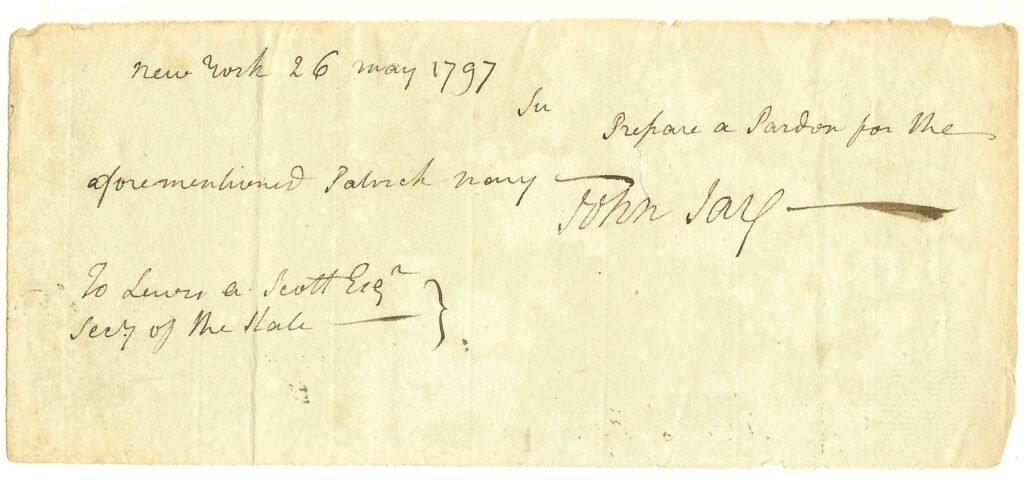 New York 26 May 1797
Sir
Prepare a Pardon for the
aforementioned Patrick Nary
John Jay
To Lewis A. Scott Esqr
Secy of the State